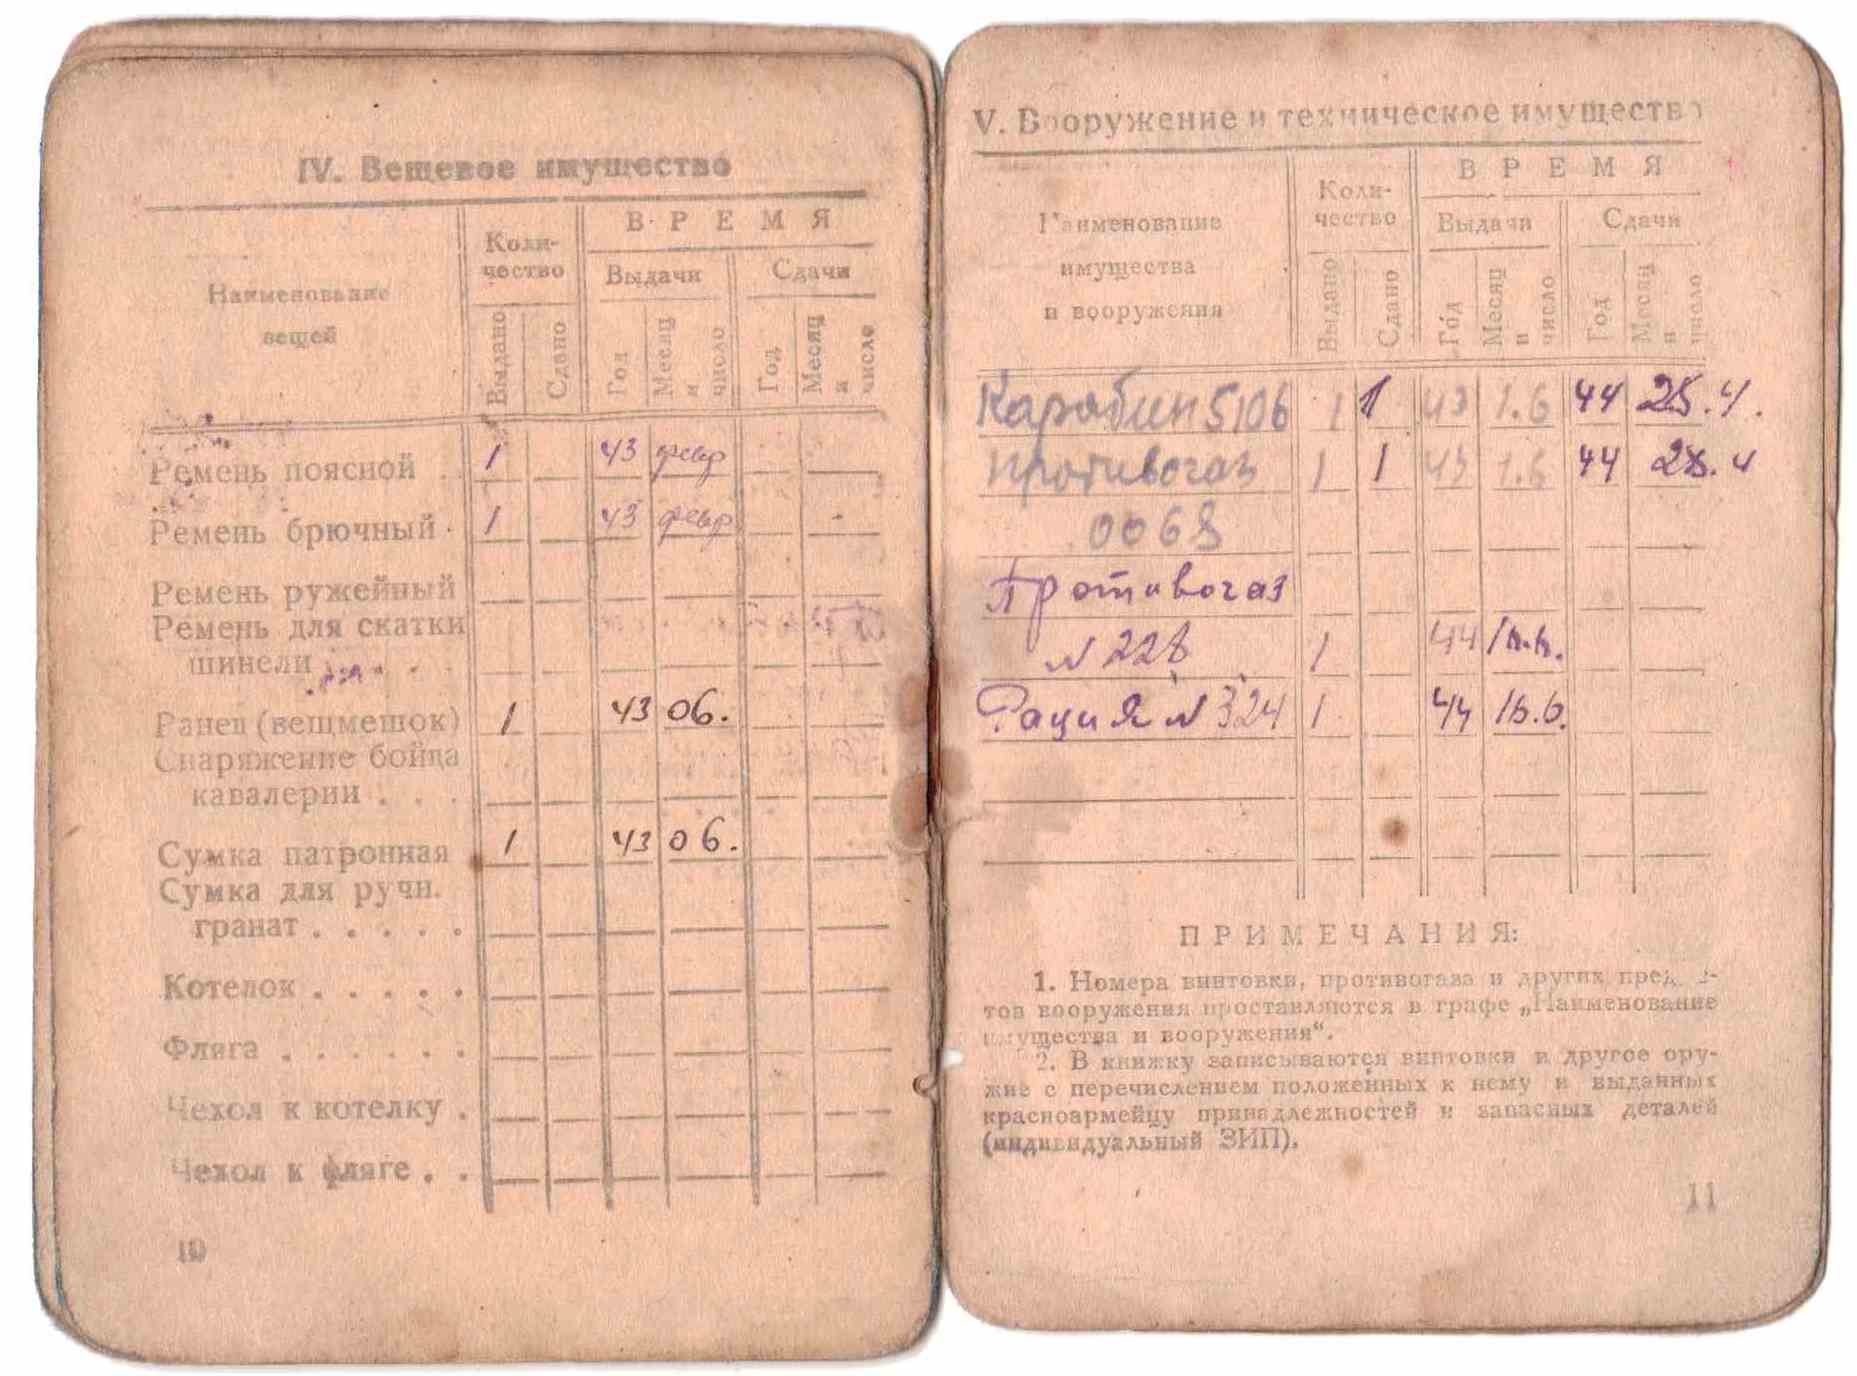 IV. Вещевое имущество
Наименование вещей
Коли-
чество
ВРЕМЯ
Выдачи
Сдачи
Выдано
Сдано
Год
Месяц и число
Год
Месяц и число
Ремень поясной . 1 43 февр
Ремень брючный . 1 43 февр
Ремень ружейный
Ремень для скатки
шинели . . . .
Ранец (вещмешок) 1 43 06.
Снаряжение бойца
кавалерии . . .
Сумка патронная 1 43 06.
Сумка для ручн.
гранат . . . . .
Котелок . . . . .
Фляга . . . . . .
Чехол к котелку .
Чехол к фляге . .
10
V. Вооружение и техническое имущество
Наименование
имущества
и вооружения
Коли-
чество
ВРЕМЯ
Выдачи
Сдачи
Выдано
Сдано
Год
Месяц и число
Год
Месяц и число
Карабин 5106 1 1 43 1.6 44 25.4.
Противогаз 1 1 43 1.6 44 4
0068
Противогаз
N 228 1 44
Рация N 324 1 44
ПРИМЕЧАНИЯ:
1. Номера винтовки, противогаза и других предме-
тов вооружения проставляются в графе „Наименование
имущества и вооружения“.
2. В книжку записываются винтовки и другое ору-
жие с перечислением положенных к нему и выданных
красноармейцу принадлежностей и запасных деталей
(индивидуальный ЗИП).
11